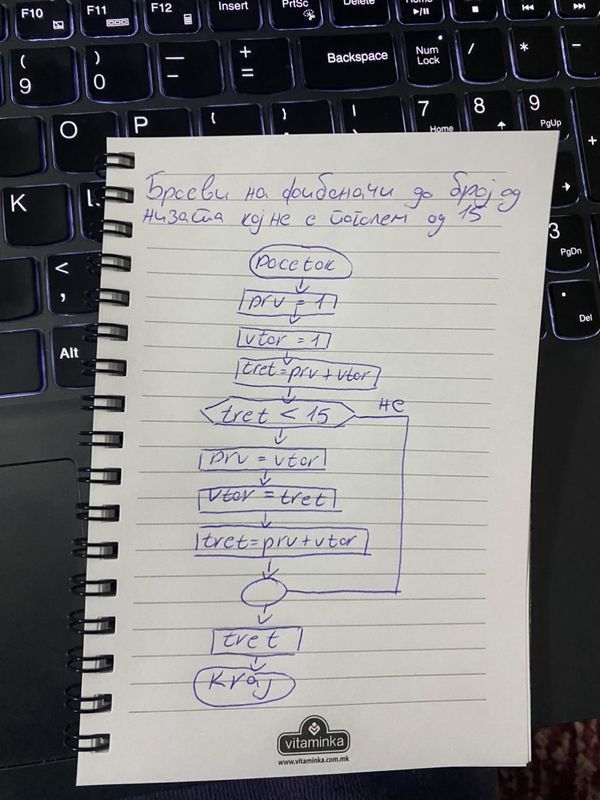 F10
F11
F12
Insert
PrtSc
Delete
Home
( 9
) 0
— -
+ =
Backspace
Num Lock
/
*
-
O
P
{
}
|
7 Home
8
9 PgUp
+
K
L
<
,
3 PgDn
Alt
.
Del
Броеви на фибоначи до број од
низата кој не е поголем од 15
pocetok
prv = 1
vtor = 1
tret=prv+vtor
tret < 15
не
prv = vtor
vtor = tret
tret=prv+vtor
tret
kraj
vitaminka
www.vitaminka.com.mk